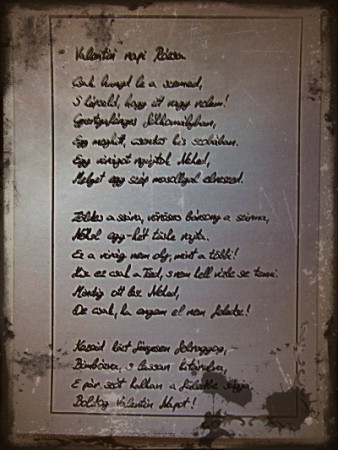 Valentin napi Rózsa
Csak hunyd le a szemed,
S képzeld, hogy itt vagy velem!
Gyertyafényes félhomályban,
Egy meghitt, csendes kis szobában.
Egy virágot nyújtok Neked,
Melyet egy szép mosollyal elveszed.
Zöldes a szára, vöröses bársony a szirma,
Néhol egy-két tüske rajta.
Ez a virág nem oly, mint a többi!
Ez csak a Tied, s nem kell vízbe se tenni.
Mindig ott lesz Neked,
De csak, ha engem el nem feledsz!
Kezeid közt fényesen felragyog,
Bimbózva, s lassan kitárulva,
E pár szót halkan a füledbe súgja:
Boldog Valentin Napot!